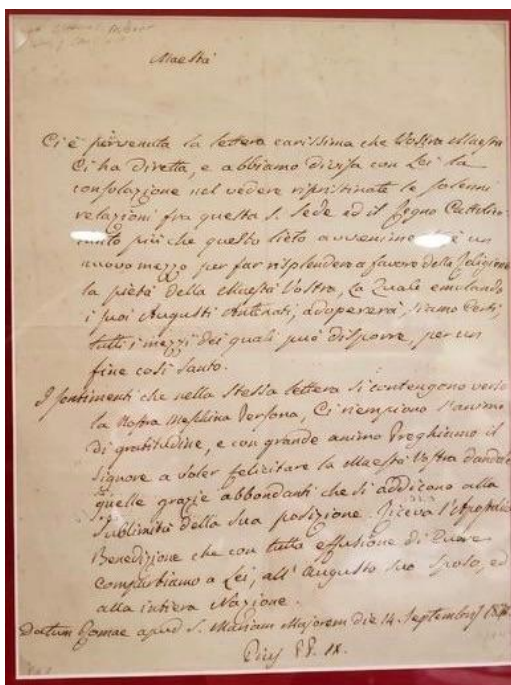 Maestà
Ci è pervenuta la lettera carissima che Vostra Maestà
Ci ha diretta, e abbiamo divisa con Lei la
consolazione nel vedere ripristinate le solenni
relazioni fra questa S. Sede ed il Regno Cattolico
tanto più che questo lieto avvenimento è un
nuovo mezzo per far risplendere a favore della Religione
la pietà della Maestà Vostra, La Quale emulando
i suoi Augusti Antenati, adopererà, siamo Certi,
tutti i mezzi dei quali può disporre, per un
fine così santo.
I sentimenti che nella stessa lettera si contengono verso
la Nostra Meschina Persona, Ci riempiono l'animo
di gratitudine, e con grande animo Preghiamo il
Signore a voler felicitare la Maestà Vostra dandole
quelle grazie abbondanti che si addicono alla
sublimità della Sua posizione. Riceva l'Apostolica
Benedizione che con tutta effusione di Cuore
compartiamo a Lei, all'Augusto suo Sposo, ed
alla intiera Nazione.
Datum Romae apud S. Mariam Majorem die 14 Septembris
Pius PP. IX.